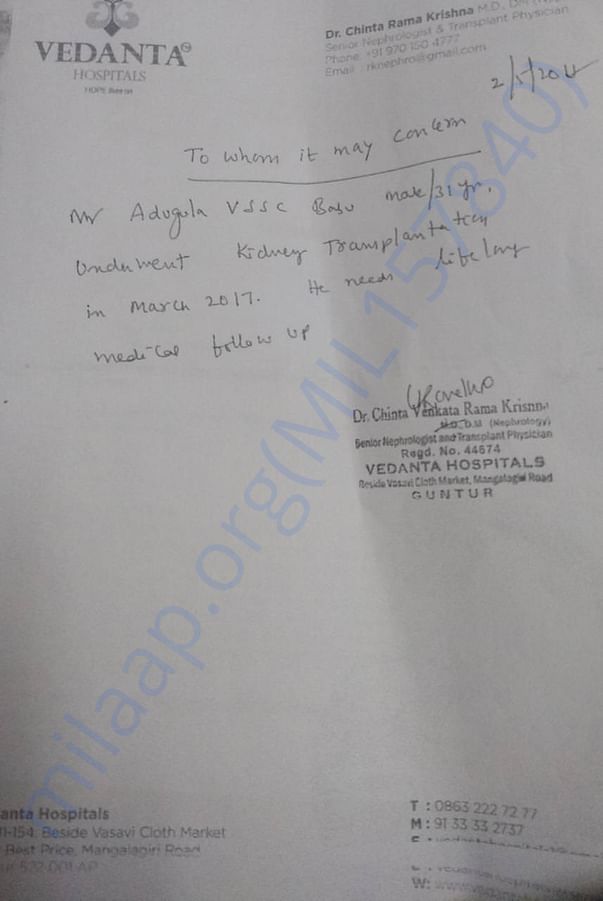 VEDANTA
HOSPITALS
Dr. Chinta Rama Krishna M.D.,
Senior Nephrologist & Transplant Physician
Phone: +91 970 150 4777
Email : rknephro@gmail.com
To whom it may concern
Mr Adugula VSSC Babu male/31 yr,
Underwent Kidney Transplantation
in March 2017. He needs lifelong
medical follow up
Dr. Chinta Venkata Rama Krisnna
M.D. D.M (Nephrology)
Senior Nephrologist and Transplant Physician
Regd. No. 44674
VEDANTA HOSPITALS
Beside Vasavi Cloth Market, Mangalagiri Road
GUNTUR
milaap.org(MIL157840)
anta Hospitals
11-154, Beside Vasavi Cloth Market
Best Price, Mangalagiri Road
522 001 AP
T : 0863 222 72 77
M : 91 33 33 2737
W: